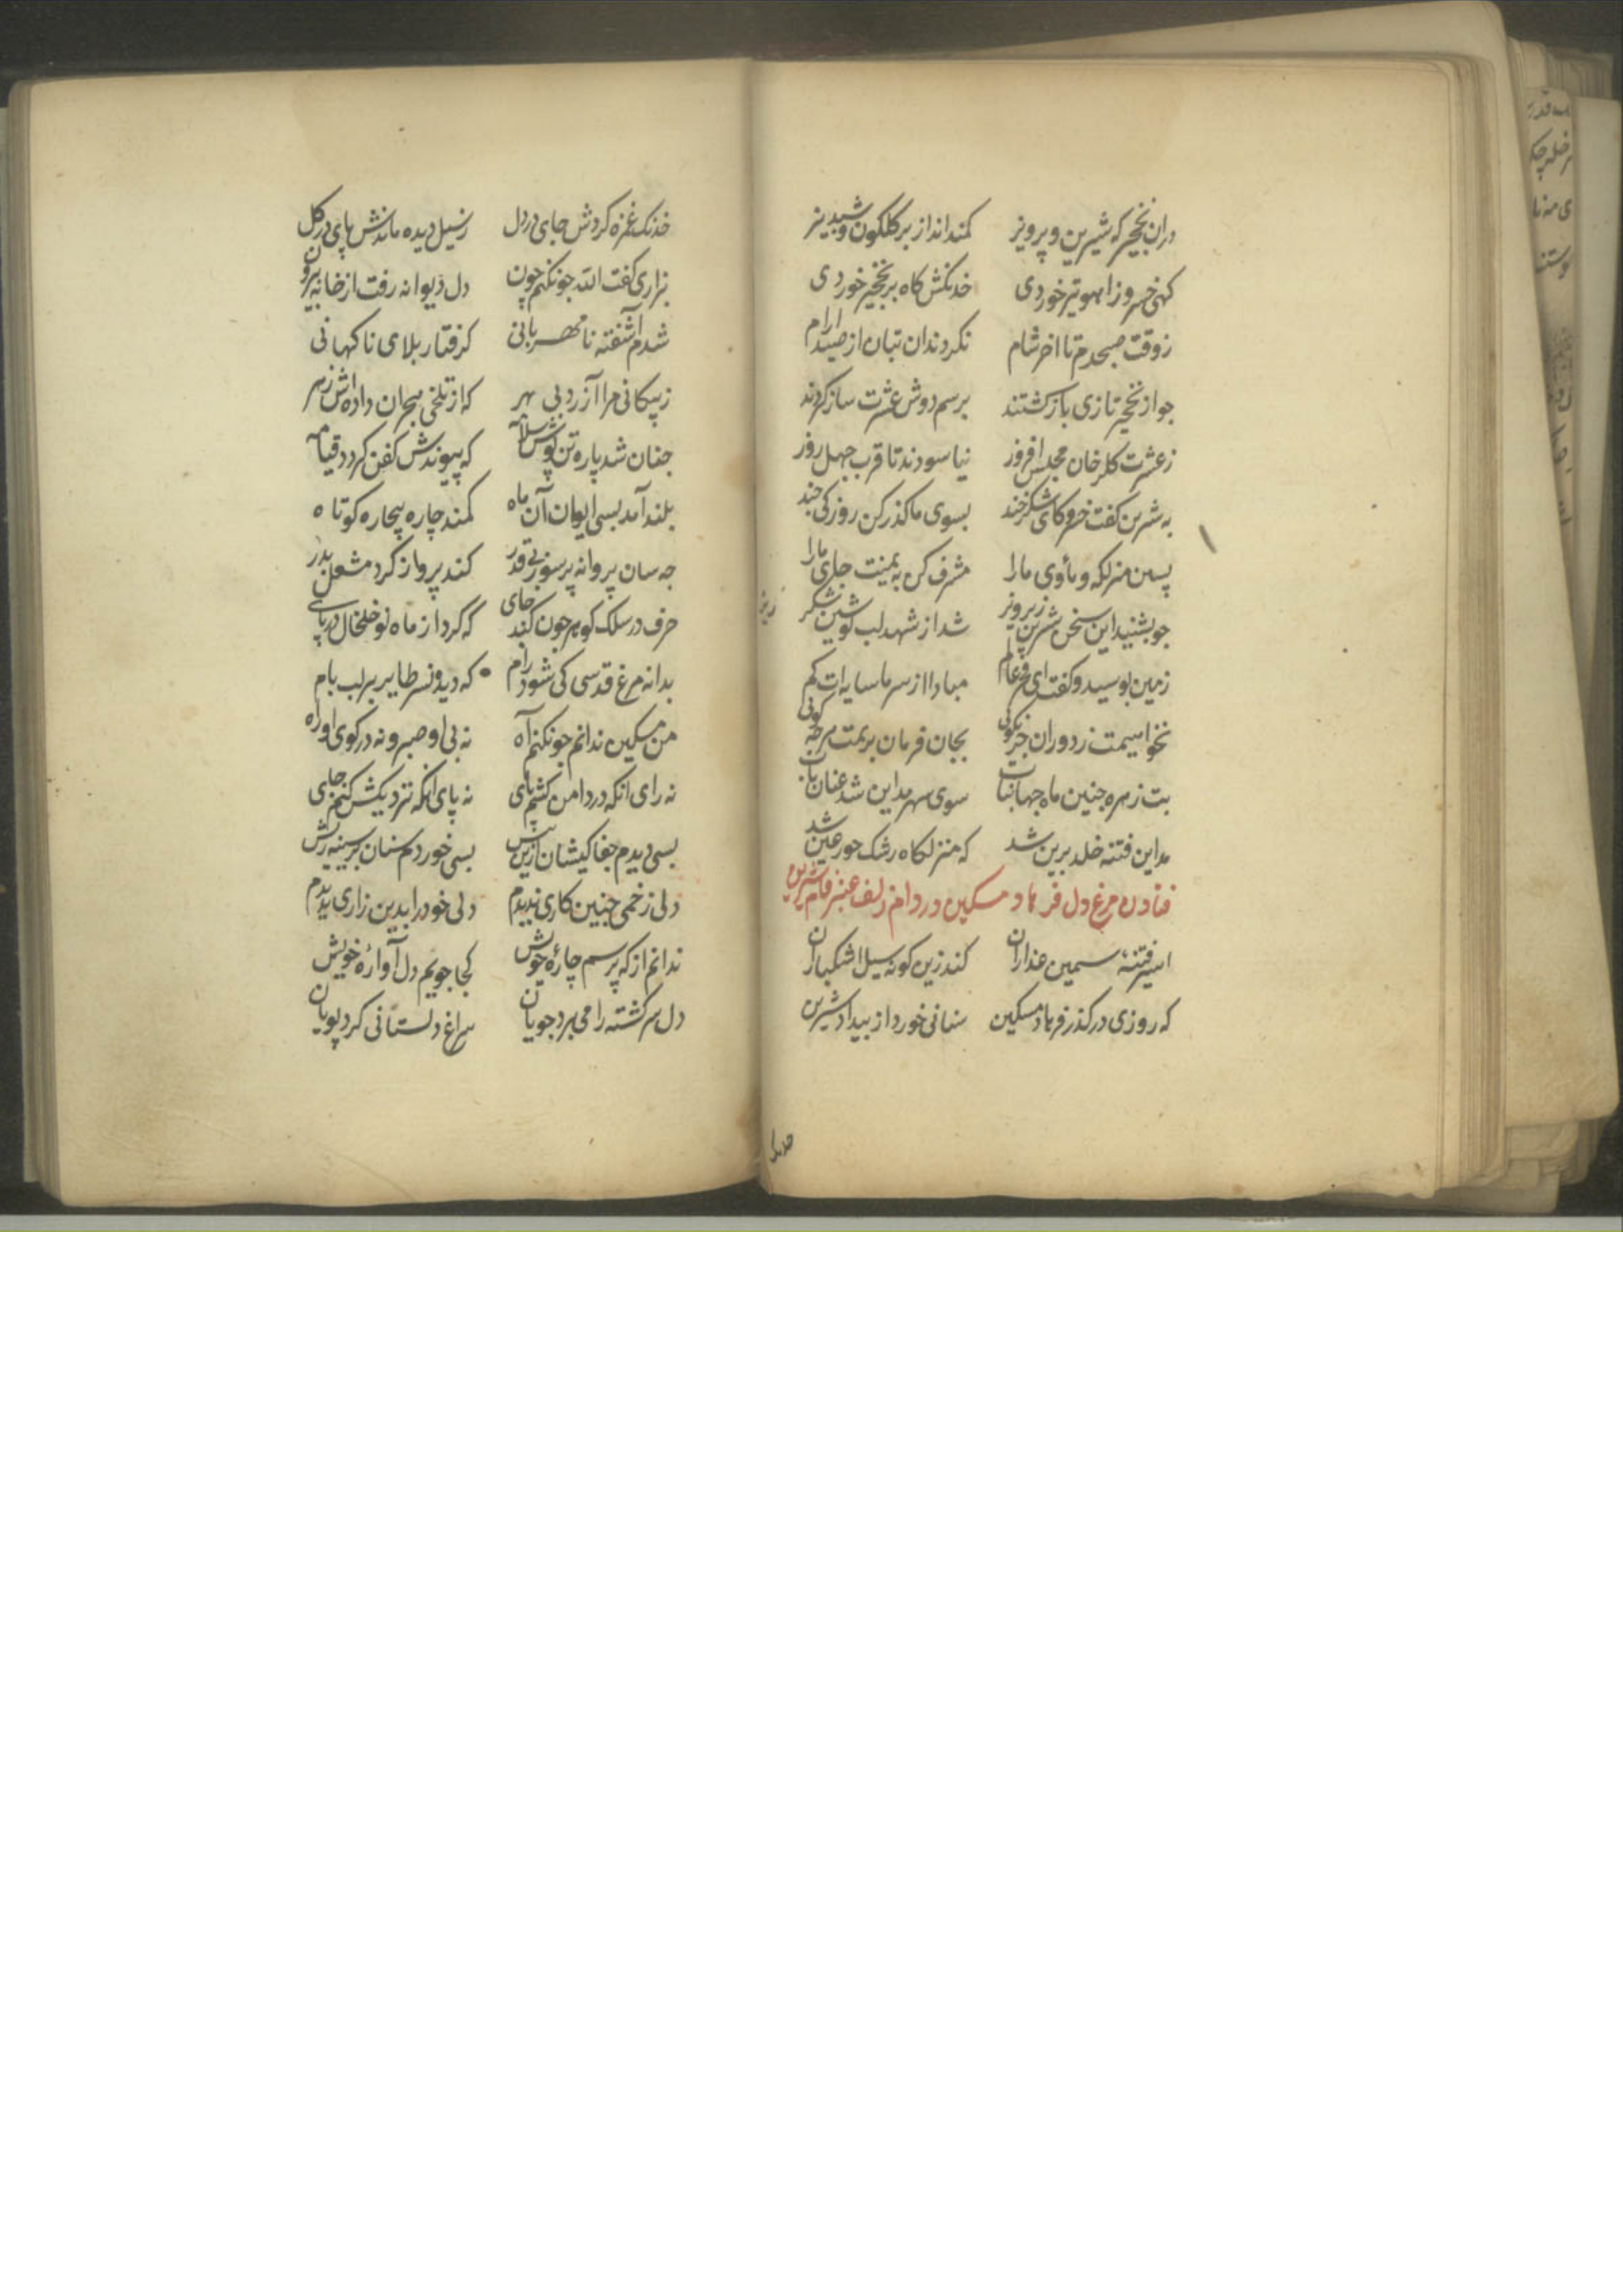 دران نخجیر که شیرین و پرویز کمندانداز بر کلکون و شبدیز
کهی خسرو زاهو تیر خوردی خدنکش کاه بر نخجیر خوردی
ز وقت صبحدم تا اخر شام نکردند ان بتان از صید ارام
جو از نخجیر تازی باز کشتند برسم دوش عشرت ساز کردند
ز عشرت کلرخان مجلس افروز نیاسودند تا قرب جهل روز
به شیرین کفت خسرو کای شکرخند بسوی ما کذر کن روزکی جند
پسین منزلکه و ماوی ما را مشرف کن به یمنت جای ما را
جو بشنید این سخن شیرین ز پرویز شد از شهد لب نوشین شکر ریز
زمین بوسید و کفت ای عالم مبادا از سر ما سایه ات کم
نخواهیمت ز دوران جز نکویی بجان فرمان بریمت هرجه کویی
بت زهره جبین ماه جهانتاب سوی شهر مداین شد عنان تاب
مداین فتنه خلد برین شد که منزلکاه رشک حور عین شد
فتادن مرغ دل فرهاد مسکین در دام زلف عنبرفام شیرین
اسیر فتنهٔ سیمین عذاران کند زین کونه سیل اشکباران
که روزی در کذر فرهاد مسکین سنانی خورد از بیداد شیرین
خدنک
خدنک غمزه کردش جای در دل ز سیل دیده ماندش پای در کل
بزاری کفت الله جونکنم جون دل دیوانه رفت از خانه بیرون
شدم آشفته نامهربانی کرفتار بلای ناکهانی
ز پیکانی مرا آزرد بی مهر که از تلخی هجران داده اش زهر
جنان شد پاره تن پوش سلامت که پیوندش کفن کردد قیامت
بلند آمد بسی ایوان آن ماه کمند چاره بیچاره کوتاه
جه سان پروانه پرسوز بی قدر کند پرواز کرد مشعل بدر
خرف در سلک کوهر جون کند جای که کرد از ماه نو خلخال در پای
بدانه مرغ قدسی کی شود رام که دید و نسر طایر بر لب بام
من مسکین ندانم جونکنم آه نه بی او صبر و نه در کوی او راه
نه رای انکه در دامن کشم پای نه پای انکه نزدیکش کنم جای
بسی دیدم جفاکیشان ازین پیش بسی خوردم سنان بر سینه ریش
ولی زخمی جنین کاری ندیدم دلی خود را بدین زاری ندیدم
ندانم از که پرسم چارهٔ خویش کجا جویم دل آوارهٔ خویش
دل سر کشته را می برد جویان سراغ دلستانی کرد پویان